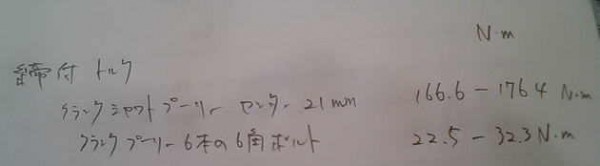 N·m
締付 トルク
クランクシャフトプーリー センター 21mm 166.6 - 176.4 N·m
クランクプーリー 6本の6角ボルト 22.5 - 32.3 N·m